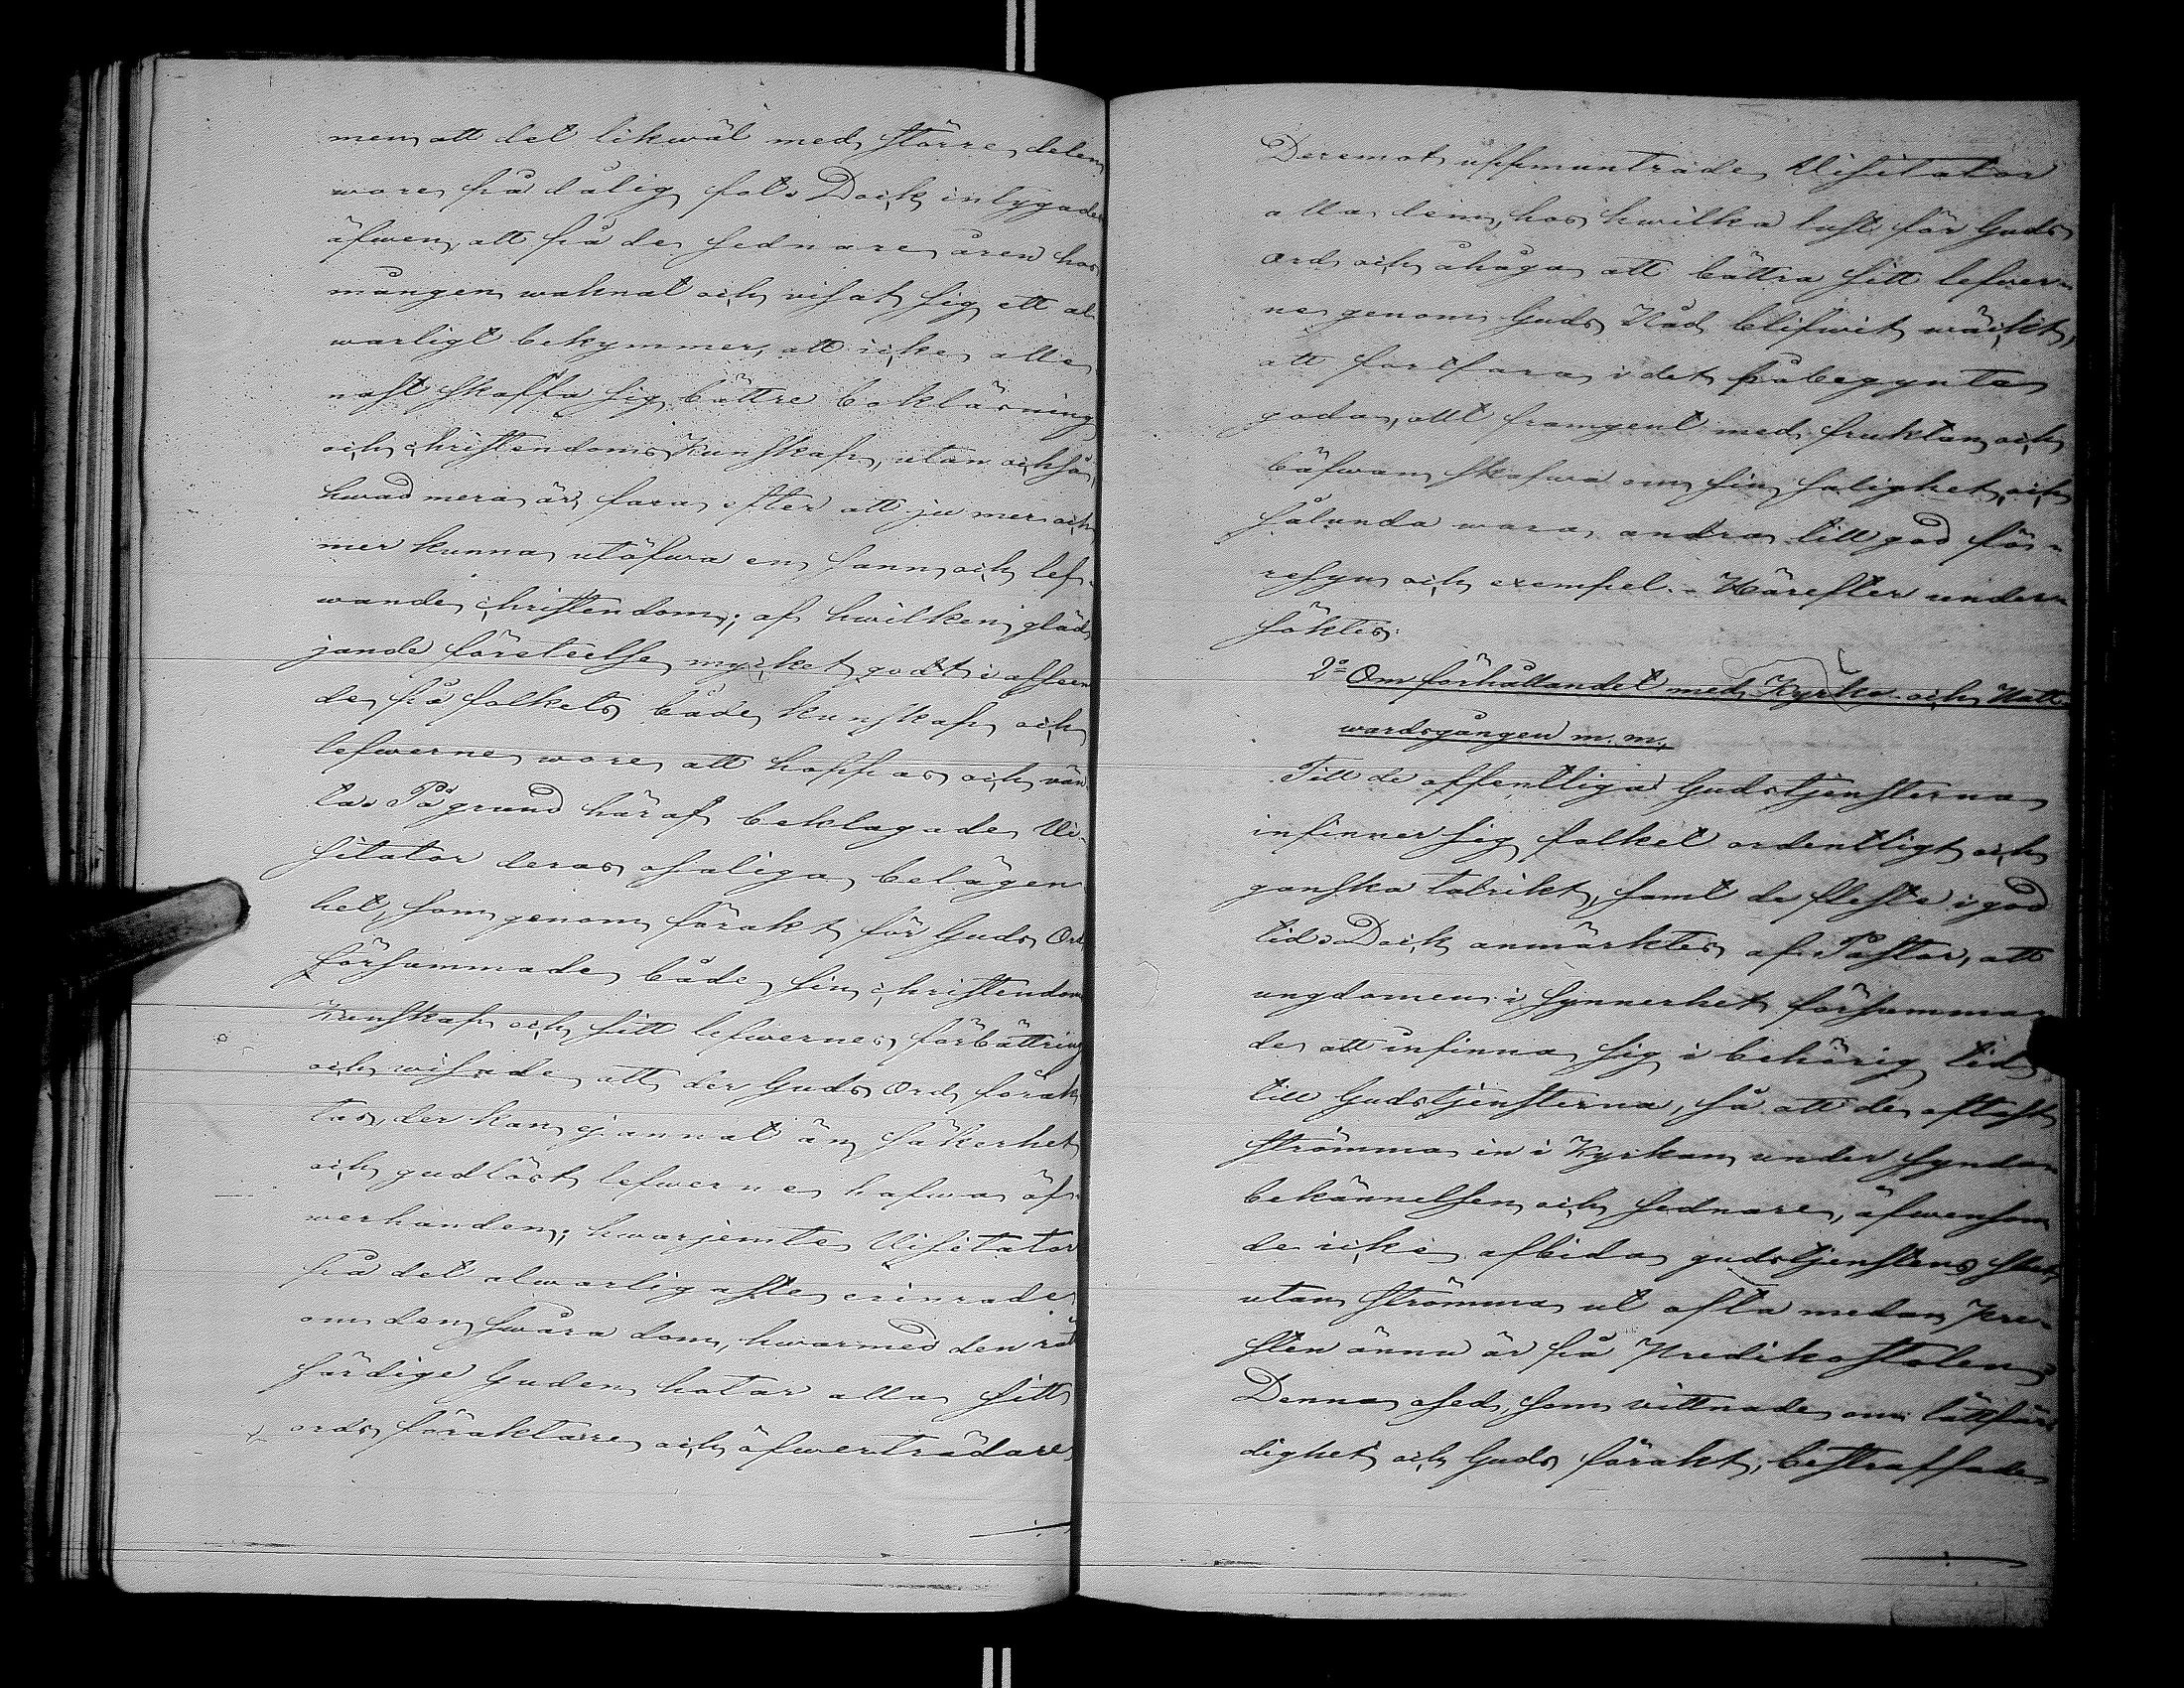 men att det likwäl med större delen
wore på dålig fot. Dock intygades
äfwen, att på de sednare åren hos
mången waknat och visat sig ett al-
warligt bekymmer, att icke alle
nast skaffa sig bättre boklärning
och christendoms Kunskap, utan också,
hwad mera är, fara efter att ju mer och
mer kunna utöfwa en sann och lef-
wande christendom; af hwilken gläd
jande företeelse mycket godt i afseen
de på folkets både kunskap och
lefwerne wore att hoppas och vän
ta. På grund häraf beklagade Vi-
sitator deras osaliga belägen
het, som genom förakt för Guds Ord
försummade både sin christendoms
Kunskap och sitt lefwernes förbättring
och wisade att der Guds Ord förak
tas, der kan ej annat än säkerhet
och gudlöst lefwerne hafwa öf-
werhanden; hwarjemte Visitator
på det alwarligaste erinrade
om den swåra dom, hwarmed den rätt
färdige Guden hotar alla sitt
ords föraktare och öfwerträdare
Deremot uppmuntrade Visitator
alla dem, hos hwilka lust för Guds
Ord och åhåga att bättra sitt lefwer-
ne genom Guds Nåd blifwit wäckt,
att fortfara i det påbegynta
goda, att framgent med fruktan och
bäfwan skapwa om sin salighet, och
sålunda wara andra till god fö-
resyn och exempel. - Härefter under-
söktes:
2º Om förhållandet med Kyrko- och Natt-
wardsgången m. m.
Till de offentliga Gudstjensterna
infinner sig folket ordentligt och
ganska talrikt, samt de fleste i god
tid. Dock anmärktes af Pastor, att
ungdomen i synnerhet försumma-
de att infinna sig i behörig tid
till Gudstjensterna, så att de oftast
strömma in i Kyrkan under synda-
bekännelsen och sednare, äfwensom
de icke afbida gudstjenstens slut,
utan strömma ut ofta medan Pre-
sten ännu är på Predikostolen.
Denna osed, som vittnade om lättfär
dighet och Guds förakt, bestraffade